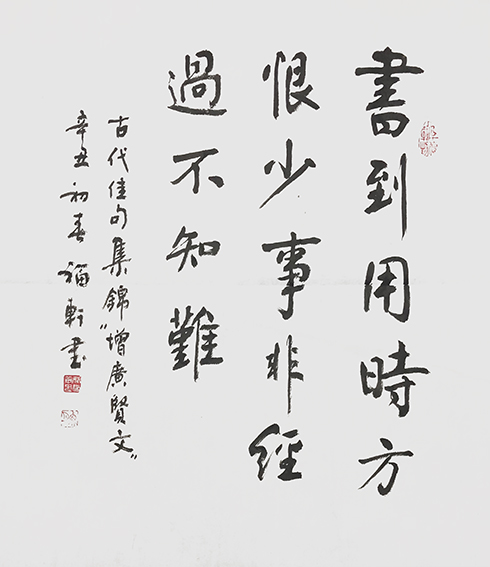 書到用時方
恨少事非經
過不知難
古代佳句集錦"增廣賢文"
辛丑初春福軒書